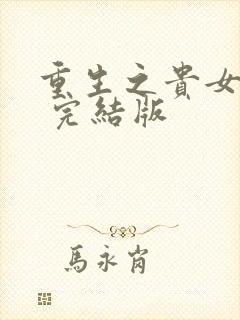 重生之貴女
完結版
馬永肖